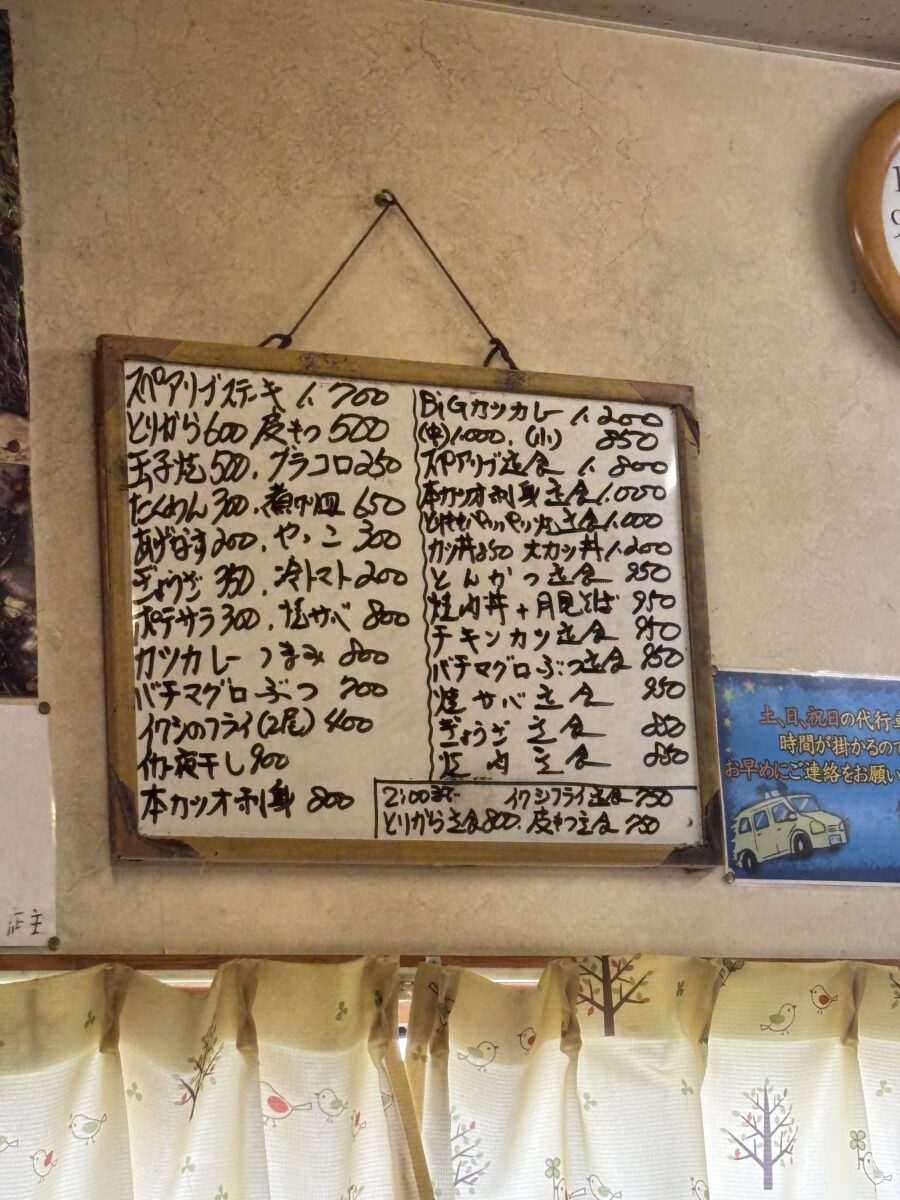 スペアリブステーキ 1.700
とりから600 皮もつ500
玉子焼500. グラコロ250
たくわん300. 煮カツ皿 650
あげなす200. やっこ 300
ぎょうざ 350. 冷トマト200
ポテサラ300. 焼サバ 800
カツカレー つまみ 800
バチマグロぶつ 700
イワシのフライ(2尾) 400
イカ一夜干し900
本カツオ刺身 800
BiGカツカレー 1.200
(中)1.000. (小) 850
スペアリブ定食 1.800
本カツオ刺身定食1.000
定食1.000
カツ丼850 大カツ丼1.200
とんかつ定食 950
焼肉丼+月見そば 950
チキンカツ定食 950
バチマグロぶつ定食 950
焼サバ定食 950
ぎょうざ定食 850
焼肉定食 850
2:00まで イワシフライ定食 750
とりから定食800. 皮もつ定食 750
土、日、祝日の代行
時間が掛かるので
お早めにご連絡をお願い
店主